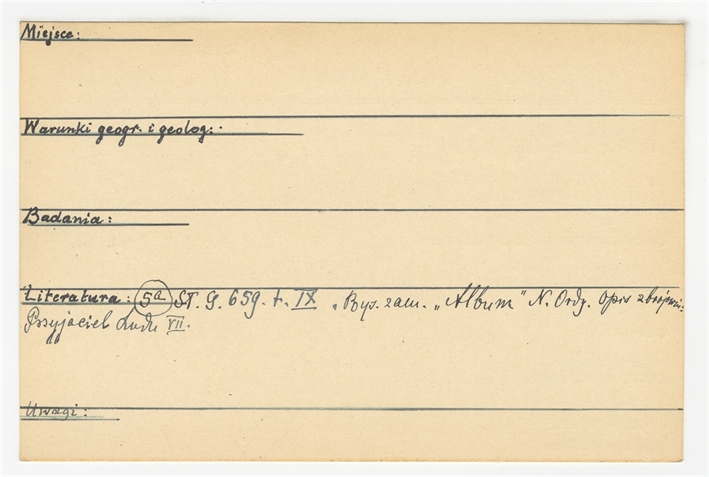 Miejsce:
Warunki geogr. i geolog:
Badania:
Literatura: 5a ST. G. 659. t. IX „Rys. zam. „Album" N. Ordy. Opis zbrojowni:
Przyjaciel Ludu VII.
Uwagi: